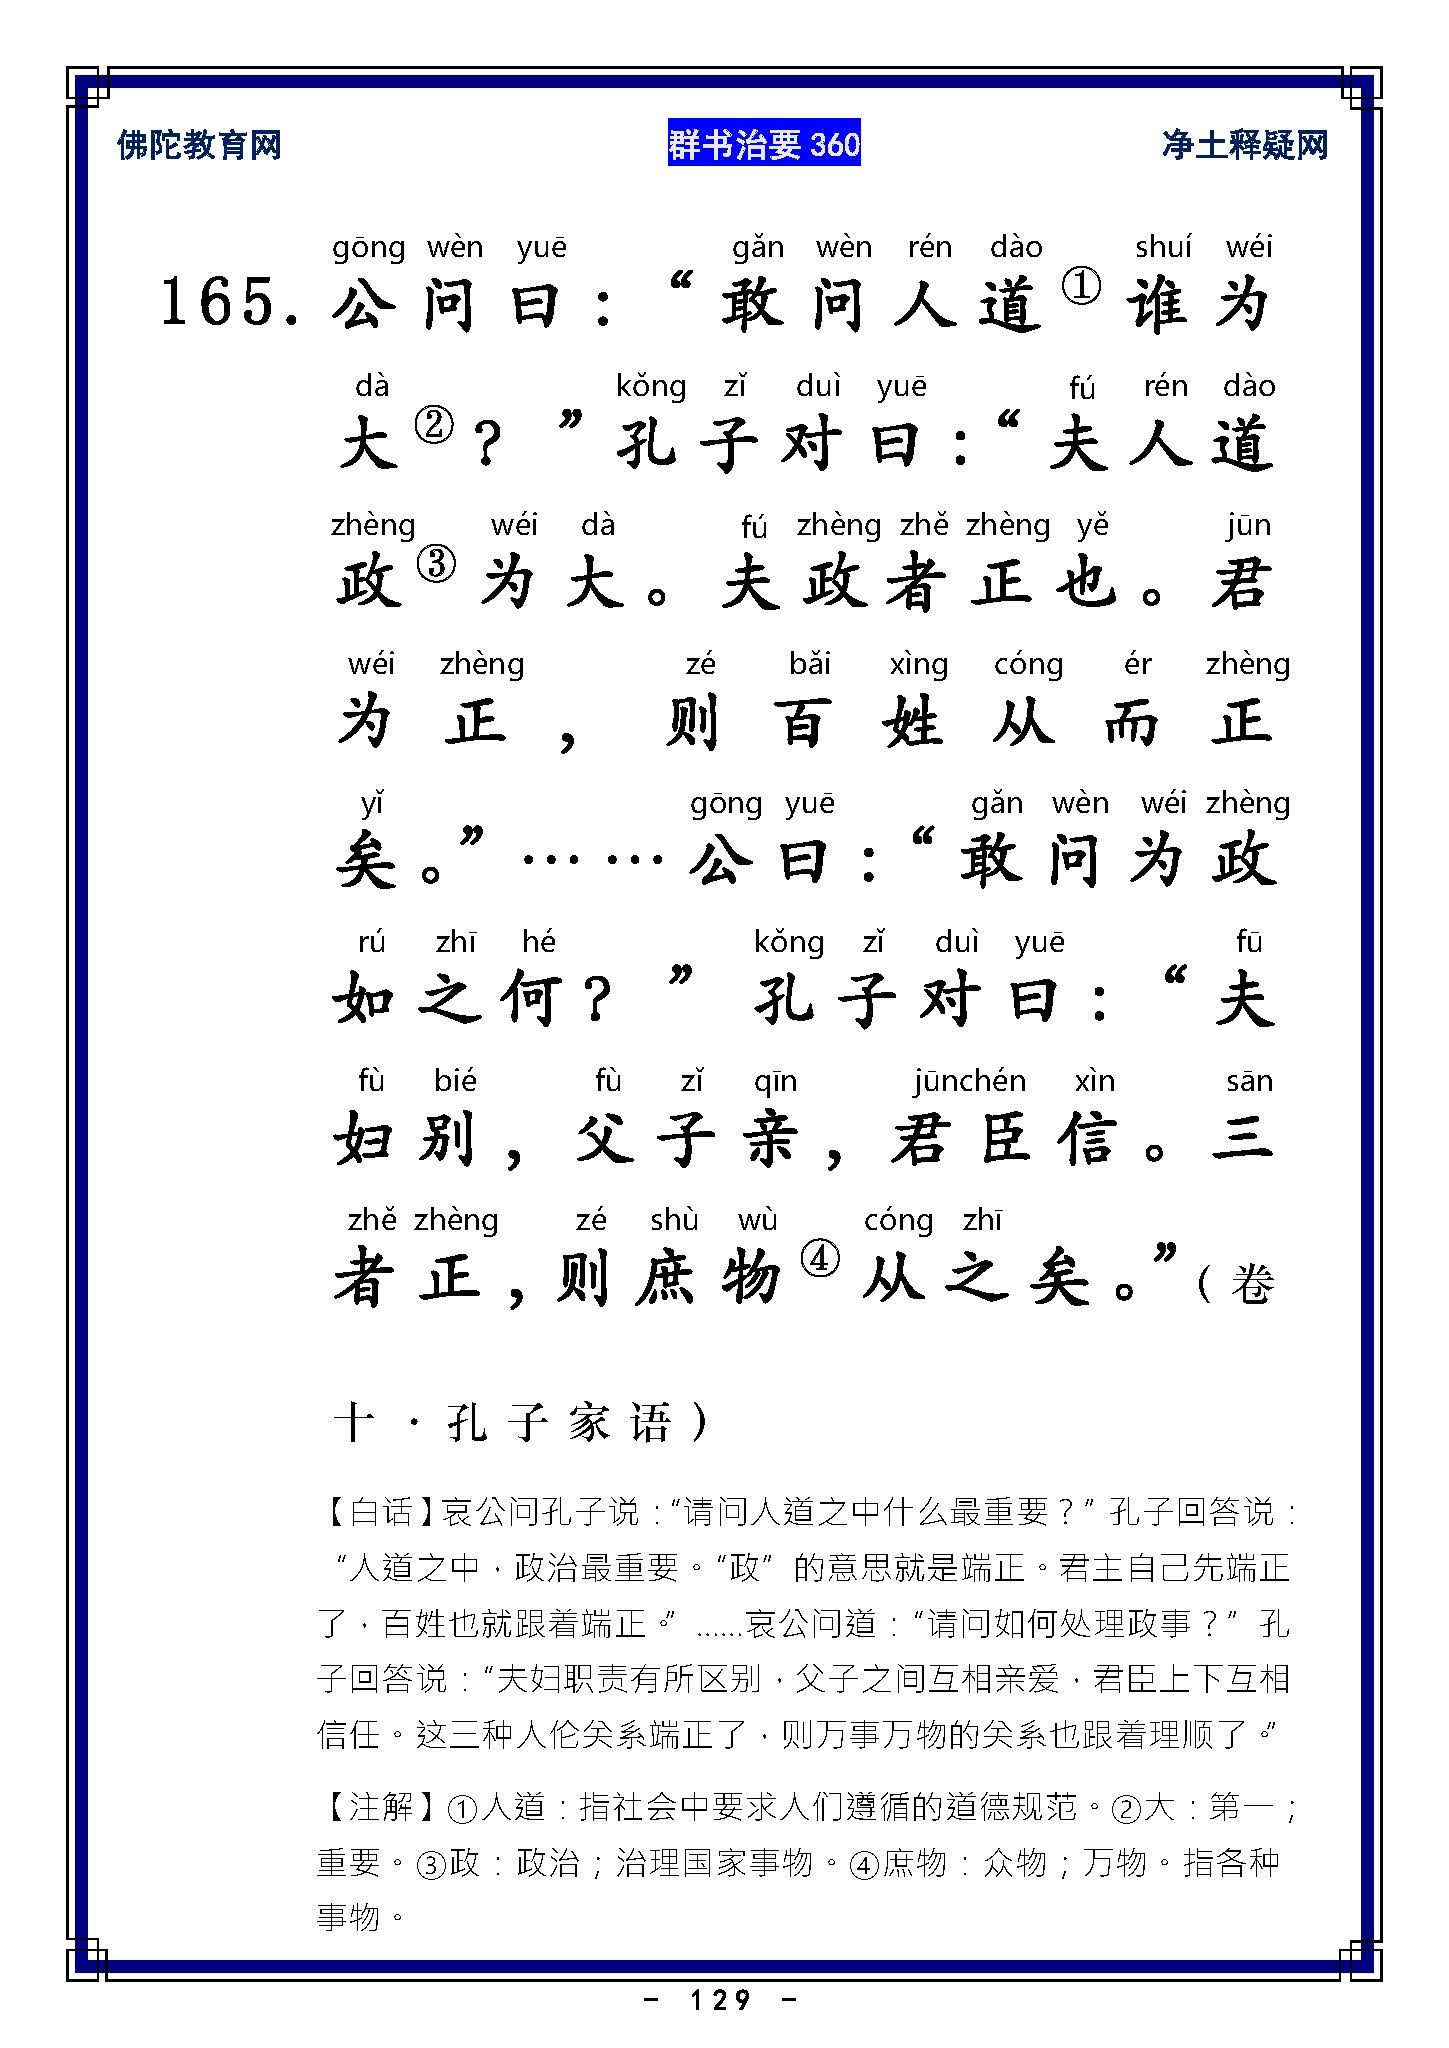 佛陀教育网 群书治要360 净土释疑网
gōng wèn yuē gǎn wèn rén dào shuí wéi
165.公问曰：“敢问人道①谁为
dà kǒng zǐ duì yuē fú rén dào
大②？”孔子对曰：“夫人道
zhèng wéi dà fú zhèng zhě zhèng yě jūn
政③为大。夫政者正也。君
wéi zhèng zé bǎi xìng cóng ér zhèng
为正，则百姓从而正
yǐ gōng yuē gǎn wèn wéi zhèng
矣。”……公曰：“敢问为政
rú zhī hé kǒng zǐ duì yuē fū
如之何？”孔子对曰：“夫
fù bié fù zǐ qīn jūnchén xìn sān
妇别，父子亲，君臣信。三
zhě zhèng zé shù wù cóng zhī
者正，则庶物④从之矣。”（卷
十·孔子家语）
【白话】哀公问孔子说：“请问人道之中什么最重要？”孔子回答说：
“人道之中，政治最重要。“政”的意思就是端正。君主自己先端正
了，百姓也就跟着端正。”……哀公问道：“请问如何处理政事？”孔
子回答说：“夫妇职责有所区别，父子之间互相亲爱，君臣上下互相
信任。这三种人伦关系端正了，则万事万物的关系也跟着理顺了。”
【注解】①人道：指社会中要求人们遵循的道德规范。②大：第一；
重要。③政：政治；治理国家事物。④庶物：众物；万物。指各种
事物。
- 129 -